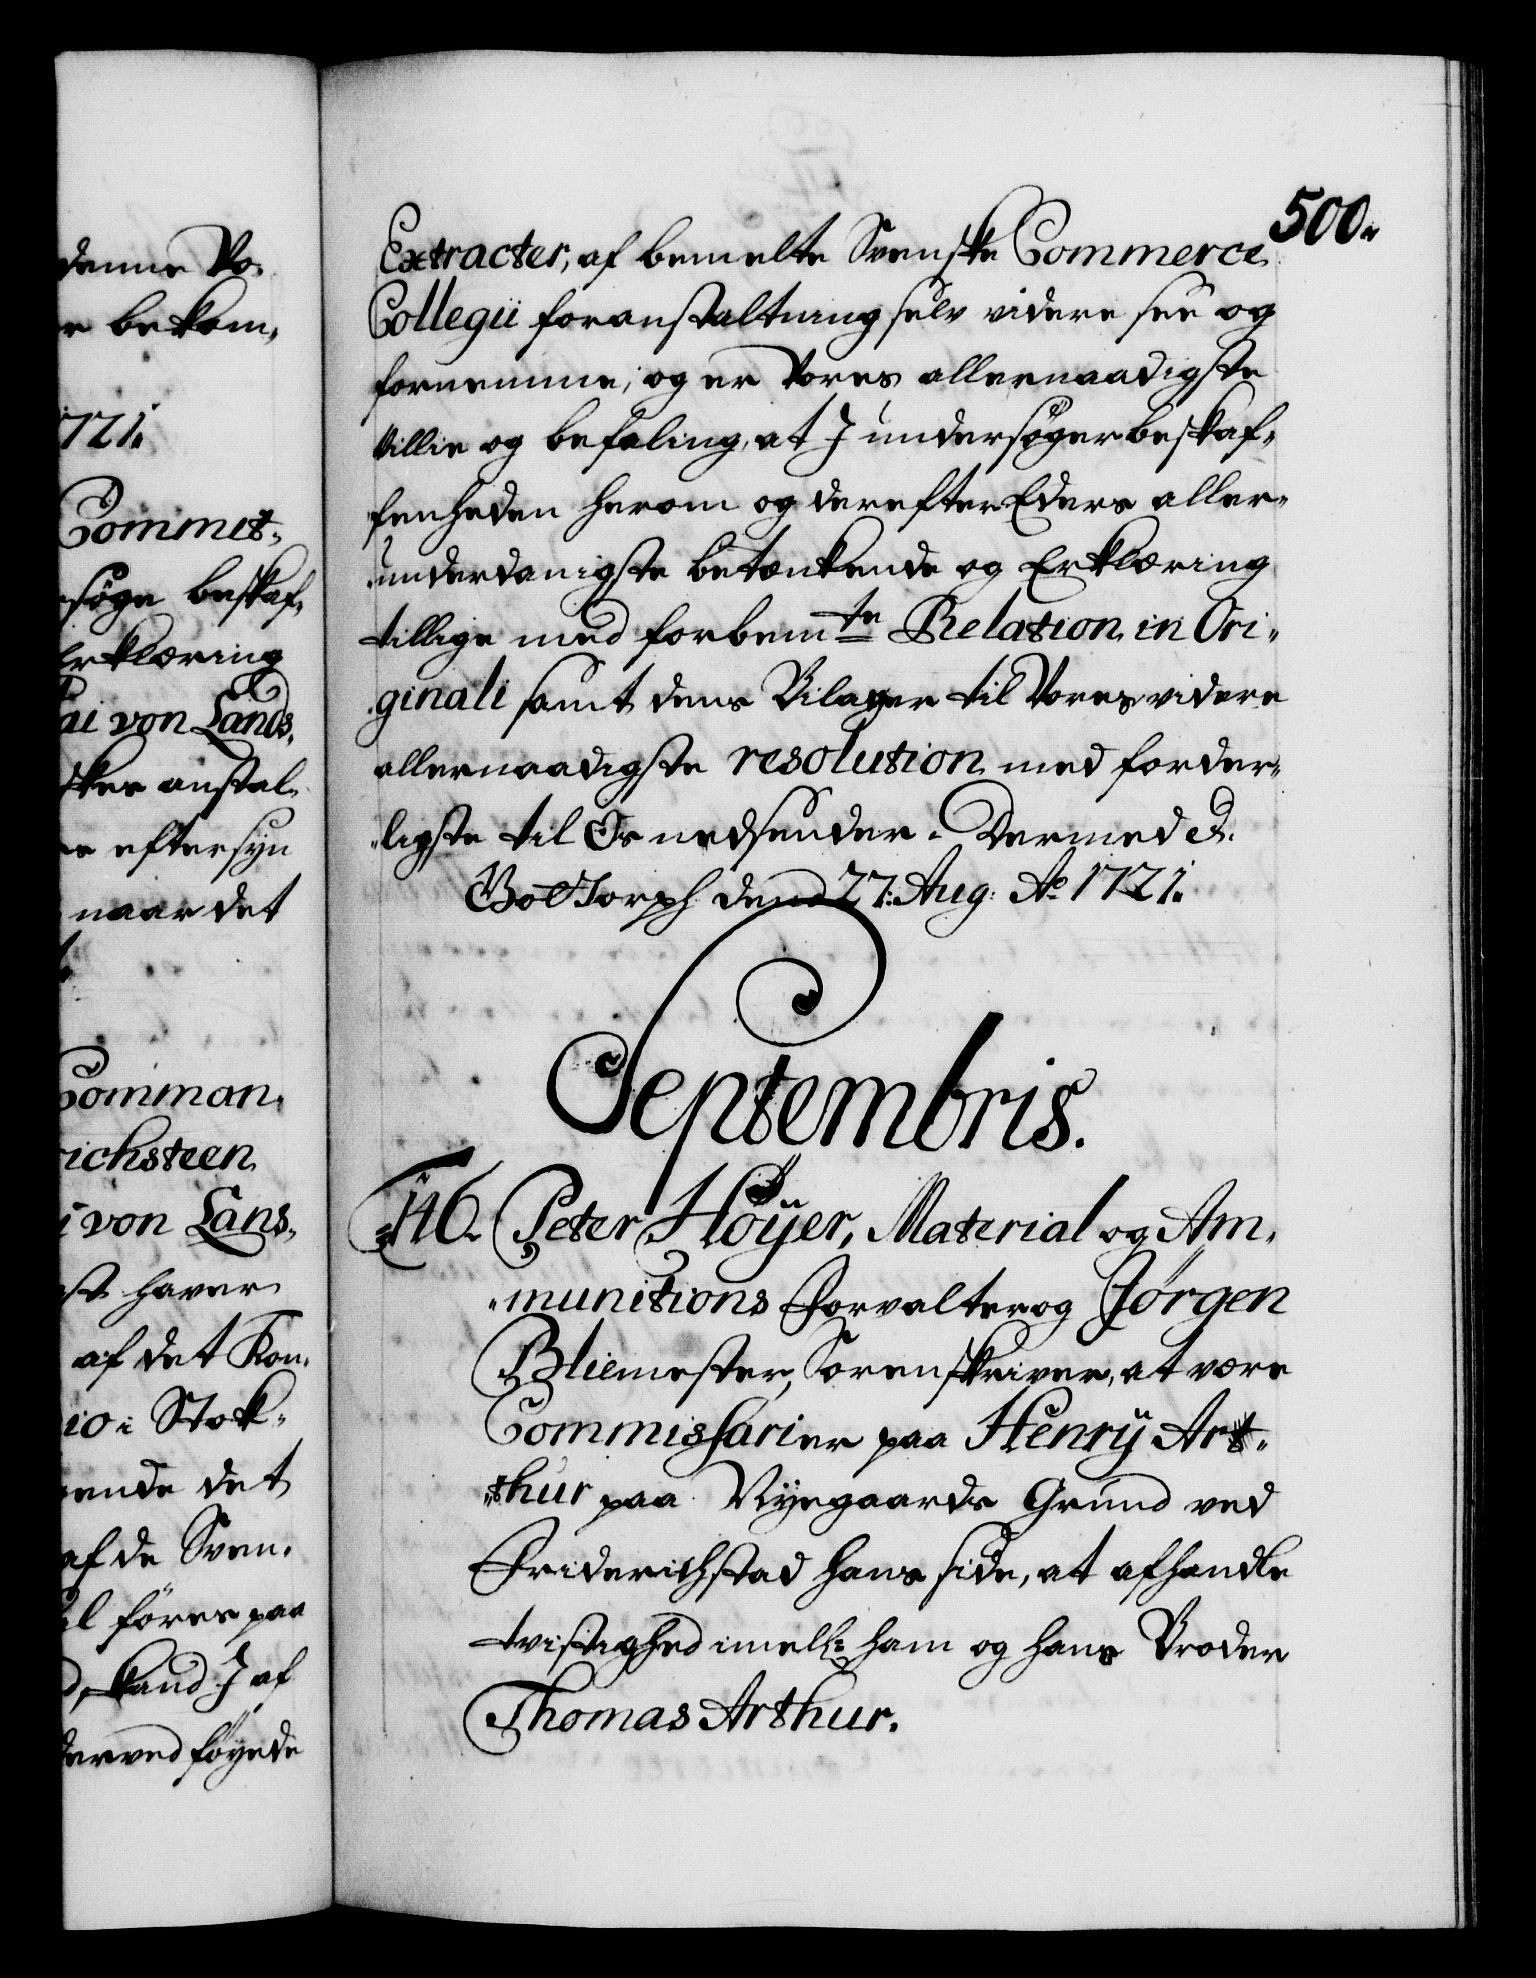 denne Vo-
r bekom,
1721.
Commit,
söge beskaf,
Erklæring
ai von Lands,
skes anstal,
e eftersyn
naar det
Comman,
richsteen
i von Lans,
st haver
af det Kon,
io i Stok,
ende det
af de Sven,
l föres paa
d, kand I af
derved föyede
500.
Extracter, af bemelte Svenske Commerce
Collegii foranstaltning selv videre see og
fornemme; og er Vores allernaadigste
Villie og befaling, at I undersöger beskaf,
fenheden herom og derefter Eders aller,
underdanigste betænkende og Erklæring
tillige med forbemte Relation in Ori,
ginali samt dens Bilager til Vores videre
allernaadigste resolution med forder,
ligste til Os nedsender. Dermed &.
Gottorph dend 27. Aug: Ao 1721.
Septembris.
146. Peter Höÿer, Material og Am,
munitions Forvalter og Jörgen
Bliemester, Sorenskriver, at være
Commissarier paa Henrÿ Art,
thur paa Nÿegaards Grund ved
Friderichstad hans side, at afhandle
tvistighed imellẽ ham og hans Broder
Thomas Arthur.